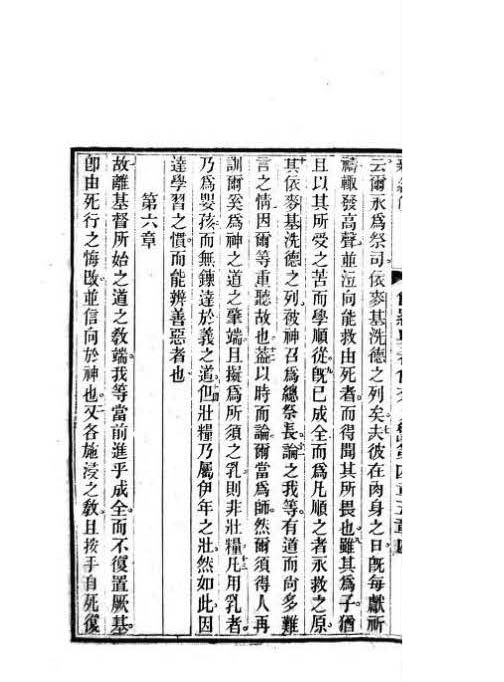 云爾永為祭司依麥基洗德之列矣夫彼在肉身之日旣每獻祈
禱䘏發高聲並涖向能救由死者而得聞其所畏也雖其為子猶
且以其所受之苦而學順從旣已成全而為凡順之者永救之原
其依麥基洗德之列彼神召為總祭長論之我等有道而尚多難
言之情因爾等重聽故也葢以時而論爾當為師然爾須得人再
訓爾奚為神之道之肇端且擬為所須之乳則非壯糧凡用乳者
乃為嬰孩而無鍊達於義之道但壯糧乃屬伊年之壯然如此因
達學習之慣而能辨善惡者也
第六章
故離基督所始之道之敎端我等當前進乎成全而不復置厥基
卽由死行之悔改並信向於神也又各施浸之敎且按手自死復